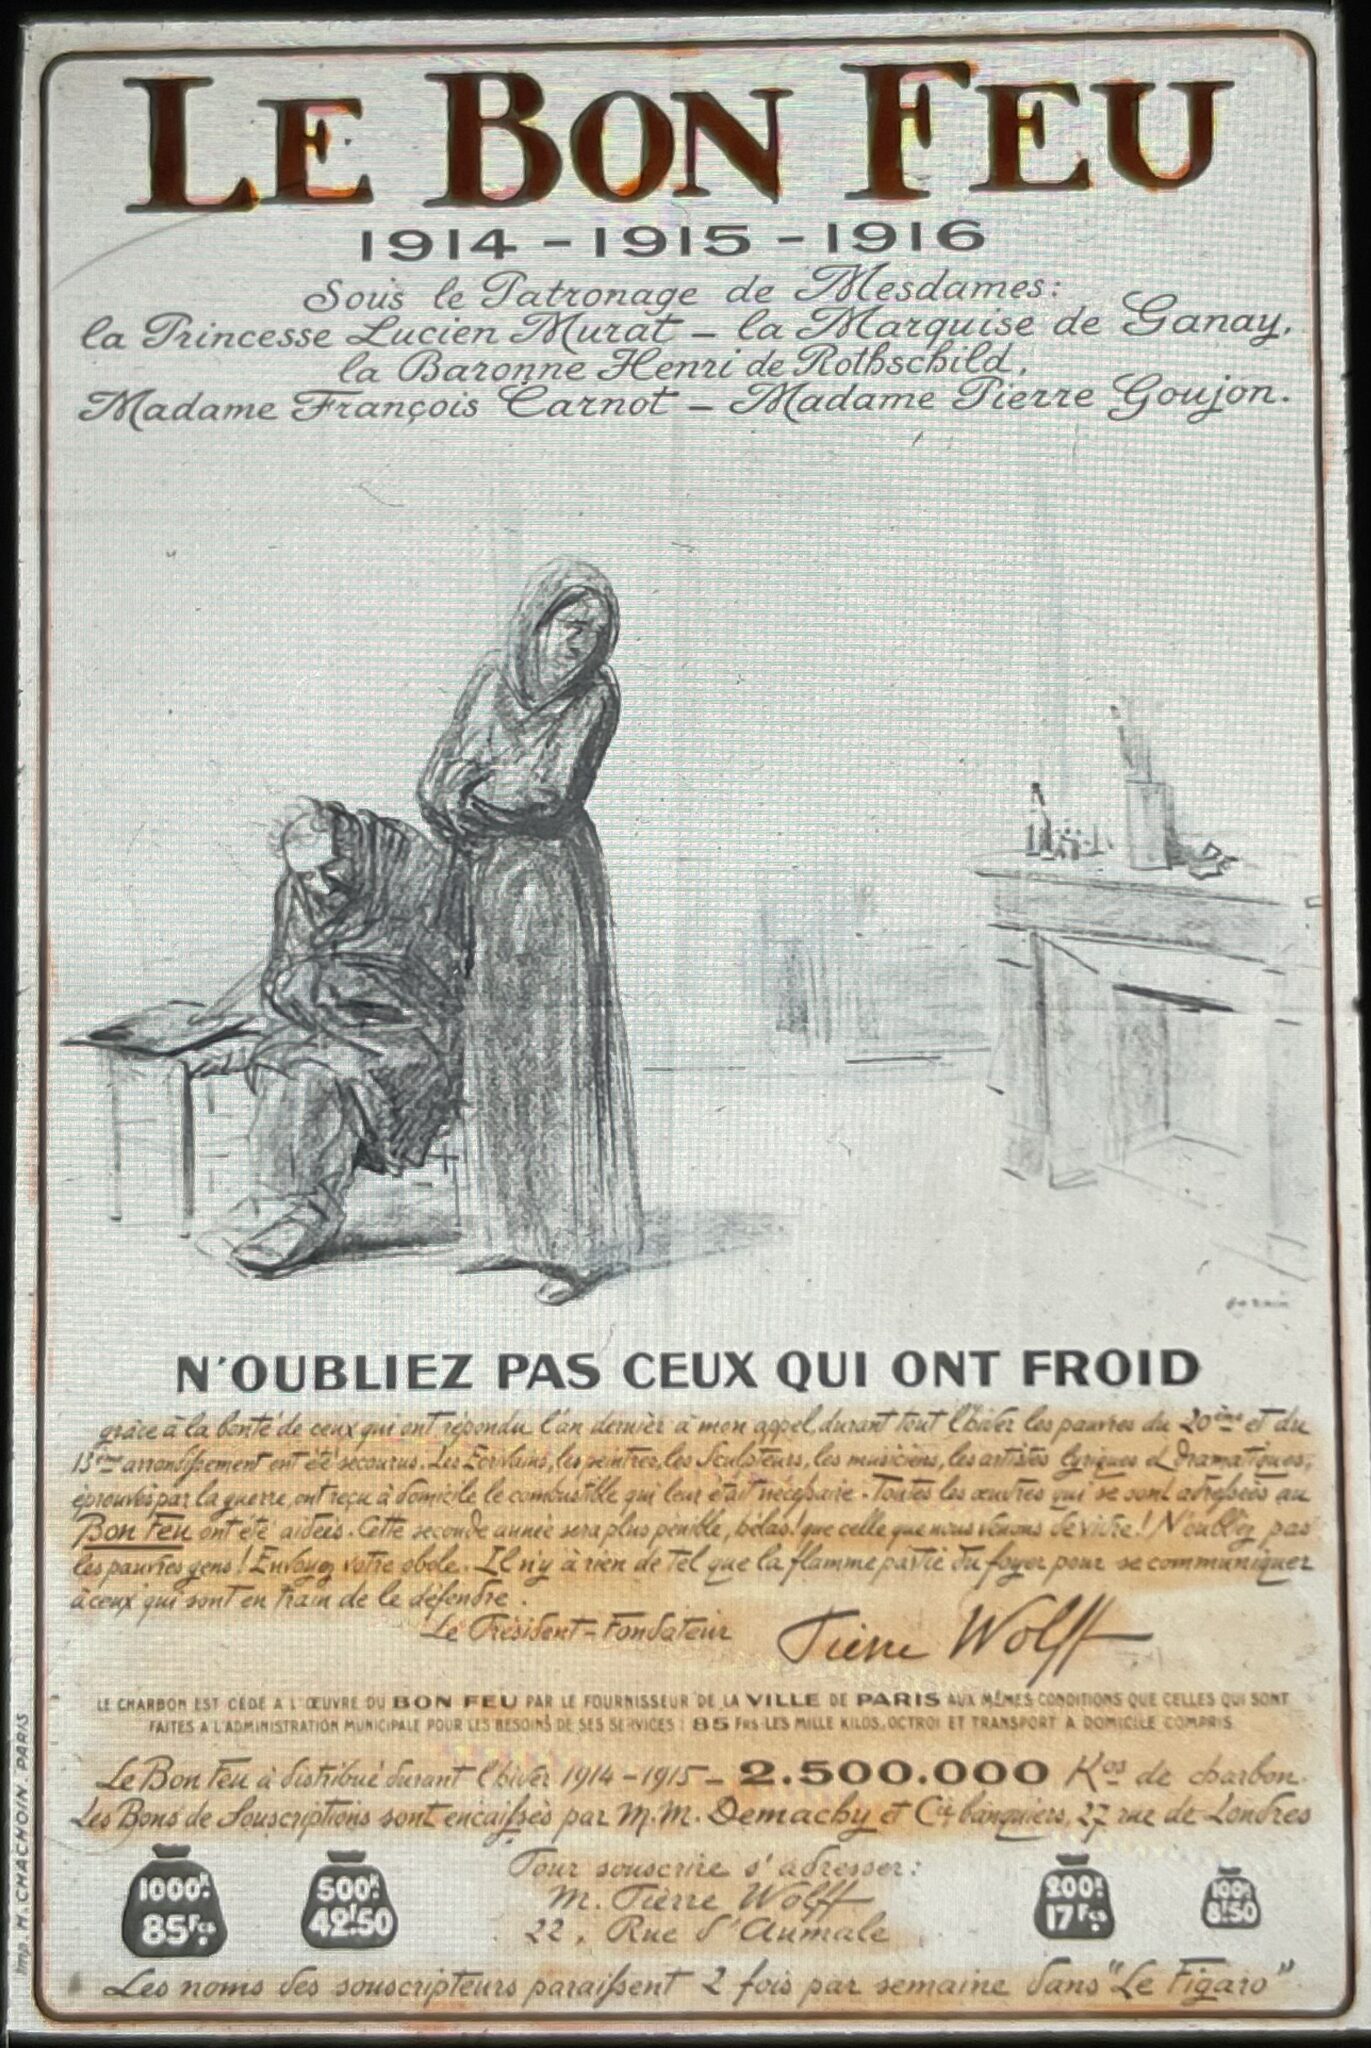 LE BON FEU
1914 - 1915 - 1916
Sous le Patronage de Mesdames:
la Princesse Lucien Murat - la Marquise de Ganay,
la Baronne Henri de Rothschild,
Madame François Carnot - Madame Pierre Goujon.
forain
N'OUBLIEZ PAS CEUX QUI ONT FROID
grâce à la bonté de ceux qui ont répondu l'an dernier à mon appel, durant tout l'hiver les pauvres du 20ème et du
13ème arrondissement ont été secourus. Les Écrivains, les peintres, les Sculpteurs, les musiciens, les artistes lyriques et dramatiques,
éprouvés par la guerre, ont reçu à domicile le combustible qui leur était nécessaire. Toutes les œuvres qui se sont adressées au
Bon Feu ont été aidées. Cette seconde année sera plus pénible, hélas! que celle que nous venons de vivre! N'oubliez pas
les pauvres gens! Envoyez votre obole. Il n'y a rien de tel que la flamme partie du foyer pour se communiquer
à ceux qui sont en train de le défendre.
Le Président-Fondateur Pierre Wolff
LE CHARBON EST CÉDÉ A L'ŒUVRE DU BON FEU PAR LE FOURNISSEUR DE LA VILLE DE PARIS AUX MÊMES CONDITIONS QUE CELLES QUI SONT
FAITES A L'ADMINISTRATION MUNICIPALE POUR LES BESOINS DE SES SERVICES : 85 FRS LES MILLE KILOS, OCTROI ET TRANSPORT A DOMICILE COMPRIS
Le Bon Feu à distribué durant l'hiver 1914-1915 - 2.500.000 Kos de charbon.
Les Bons de Souscriptions sont encaissés par M.M. Demachy et Cie banquiers, 27 rue de Londres
1000K.
85Fcs
500K
42f50
Pour souscrire s'adresser:
M. Pierre Wolff
22, Rue d'Aumale
200K
17Fcs.
100K
8f50
Les noms des souscripteurs paraissent 2 fois par semaine dans "Le Figaro"
Imp. H. CHACHOIN. PARIS